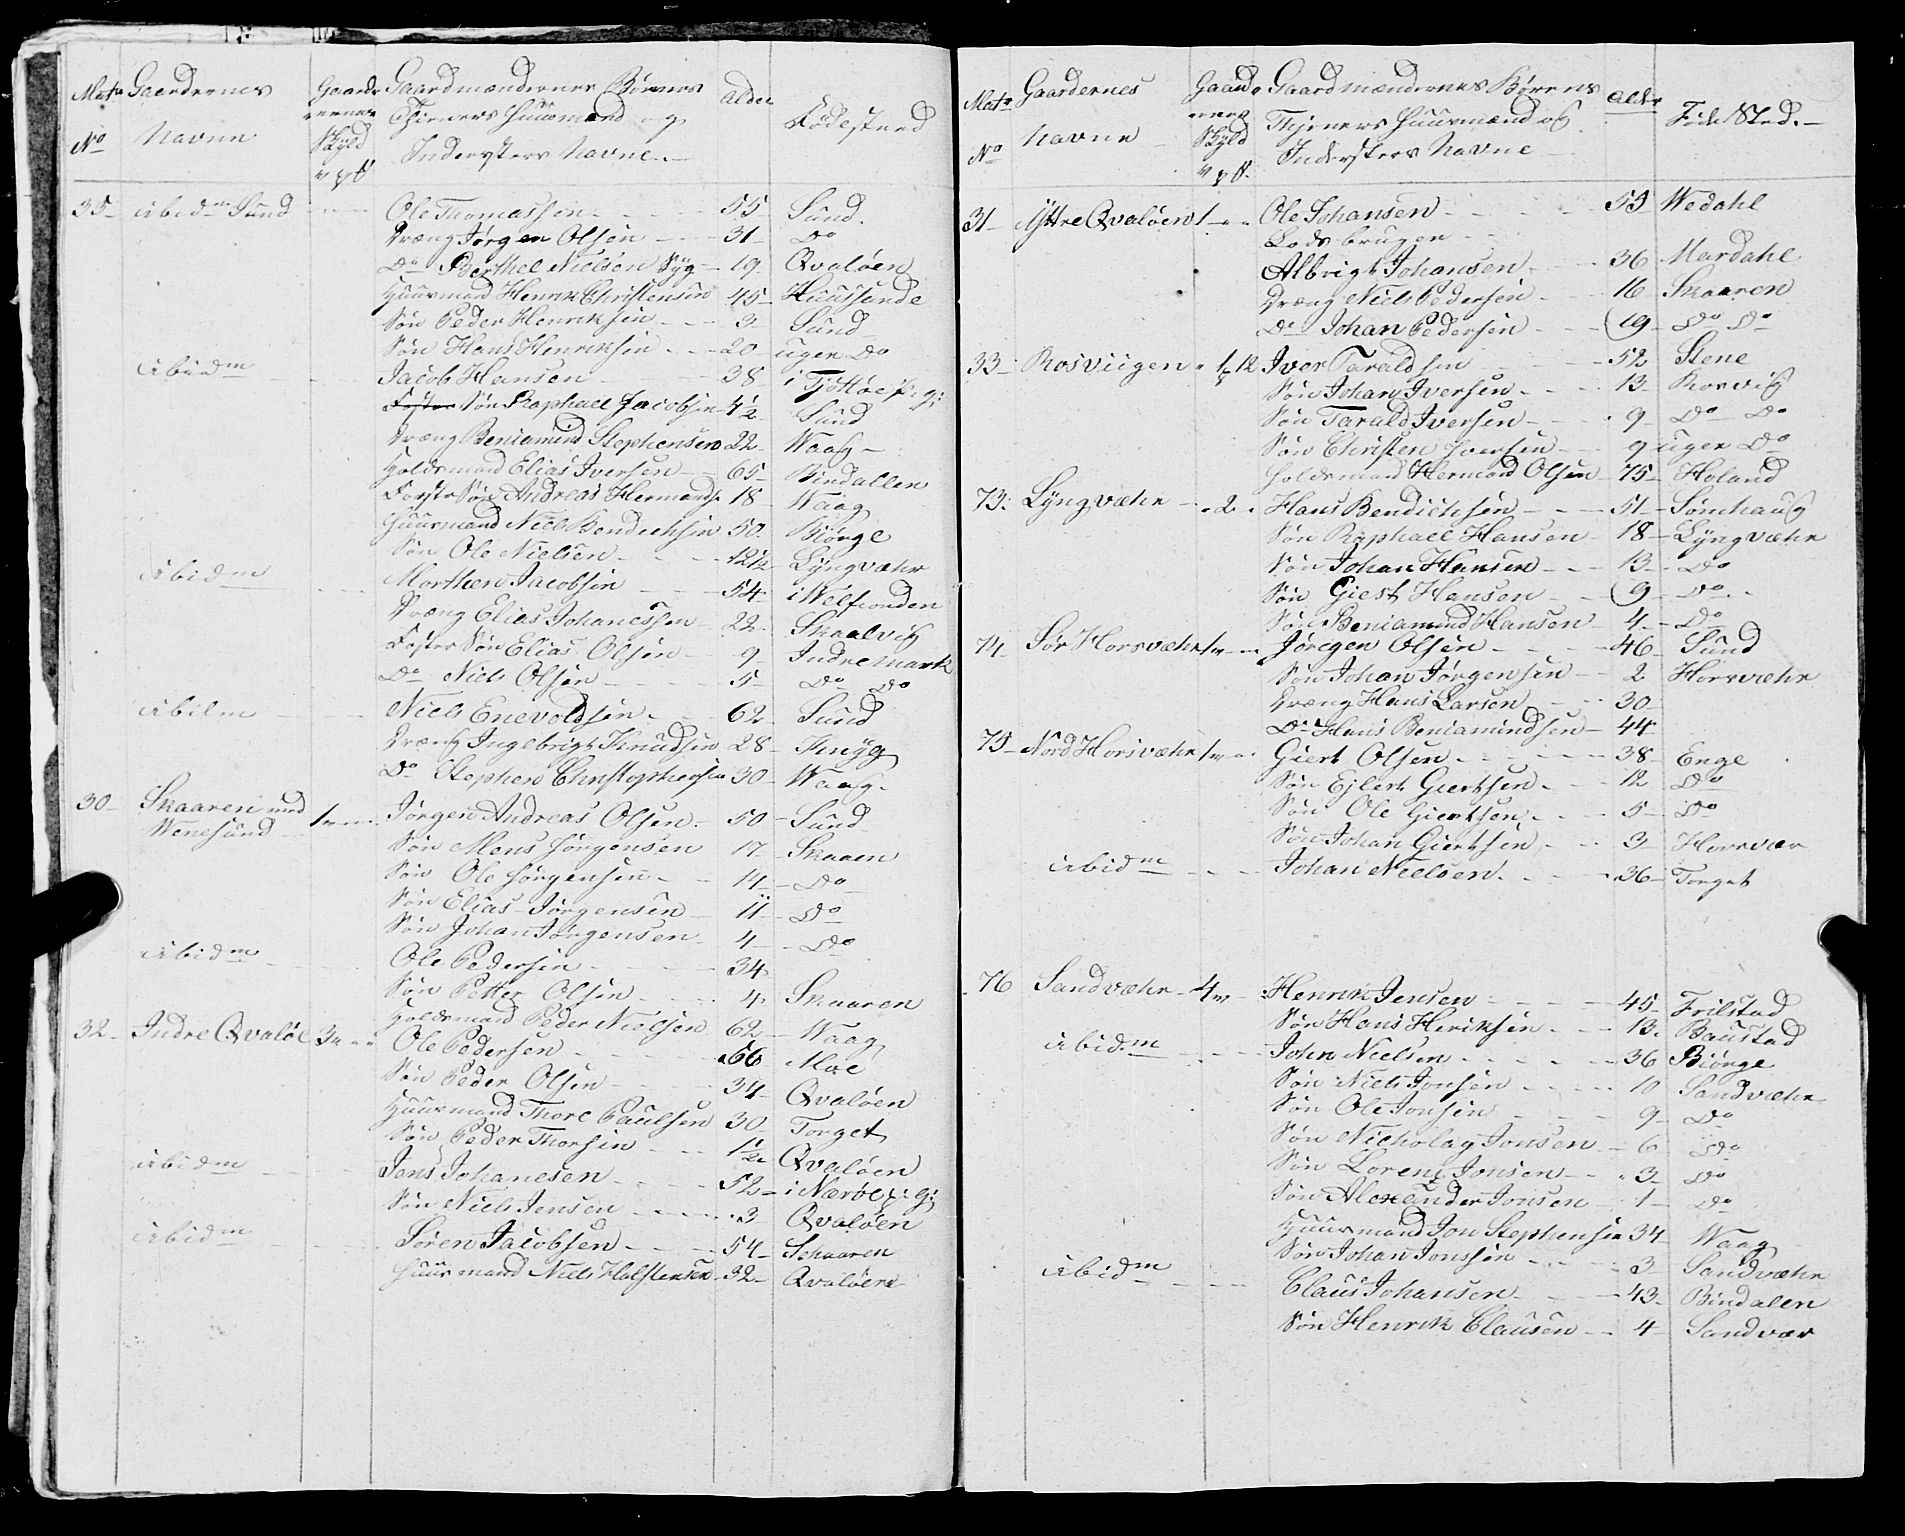 Matr Gaardernes Gaarder Gaardmændernes Børnes Alder Fødestæd
No Navne ernes Skyld Tieners Huusmænd og
v p ℔ Indersters Navne
35 ibidm Sund Ole Thomassen 55 Sund
Dræng Jørgen Olsen 31 Do
Do Berthel Nielsen Syg 19 Qvaløen
Huusmand Henrik Christensen 45 Huussunde
Søn Peder Henriksen 3 Sund
Søn Hans Henriksen 20 uger Do
ibidm Jacob Hansen 38 i Tjøttøe P: G:
Foster Søn Raphael Jacobsen 4 1/2 Sund
Dræng Beniamind Stephensen 22 Waag
Holdsmand Elias Iversen 65 Bindallen
Foster Søn Andreas Hermands 18 Waag
Huusmand Niels Bendichsen 50 Biørge
Søn Ole Nielsen 12 1/2 Lyngvæhr
ibidm Morthen Jacobsen 54 i Welfionden
Dræng Elias Johanessen 22 Skaalvig
Foster Søn Elias Olsen 9 Indremark
Do Niels Olsen 5 Do Do
ibidm Niels Enevoldsen 62 Sund
Dræng Ingebrigt Knudsen 28
Do Stephen Christophersen 30 Waag
30 Skaaren med Jørgen Andreas Olsen 50 Sund
Wenesund 1 Søn Mons Jørgensen 17 Skaaen
Søn Ole Jørgensen 14 Do
Søn Elias Jørgensen 11 Do
Søn Johan Jørgensen 4 Do
ibidm Ole Pedersen 34
Søn Petter Olsen 4 Skaaren
Holdsmand Peder Nielsen 62 Waag
32 Indre Qvaløe 3 Ole Pedersen 56 Moe
Søn Peder Olsen 34 Qvaløen
Huusmand Thore Paulsen 30 Torget
Søn Peder Thorsen 1/2 Qvaløen
ibidm Jens Johanesen 52 i Nærøe p: G:
Søn Niels Jensen 3 Qvaløen
ibidm Søren Jacobsen 54 Schaaren
Huusmand Niels Holstensen 32 Qvaløen
Matr Gaardernes Gaarder Gaardmændernes Børens Alder Føde Sted
No Navne ernes Skyld Tjeners Huusmænd og
v p ℔ Indersters Navne
31 Yttre Qvaløen 1 Ole Johansen 55 Wedahl
Lods bruger
Albrigt Johansen 36 Mardahl
Dræng Niels Pedersen 16 Skaaren
Do Johan Pedersen 19 Do Do
33 Rosviigen 1 12 Iver Taraldsen 52 Stene
Søn Johan Iversen 13 Rosvig
Søn Tarald Iversen 9 Do Do
Søn Christen Iversen 9 uger Do
Holdsmand Hermand Olsen 75 Holand
73 Lyngvæhr 2 Hans Bendichsen 51 Sømhaug
Søn Raphael Hansen 18 Lyngvæhr
Søn Johan Hansen 13 Do
Søn Giest Hansen 9 Do
Søn Beniamind Hansen 4 Do
74 Sør Horsvæhr 1 Jørgen Olsen 46 Sund
Søn Johan Jørgensen 2 Horsvæhr
Dræng Hans Larsen 30
Do Hans Beniamindsen 44
75 Nord Horsvæhr 1 Giert Olsen 38 Enge
Søn Ejlert Giertsen 12 Do
Søn Ole Giertsen 5 Do
Søn Johan Giertsen 3 Horsvær
ibidm Johan Nielsen 36 Torget
76 Sandvæhr 4 Henrik Jensen 45 Trilstad
Søn Hans Heriksen 13 Baustad
ibidm John Nielsen 36 Biørge
Søn Niels Jonsen 10 Sandvæhr
Søn Ole Jonsen 9 Do
Søn Nicholay Jonsen 6 Do
Søn Lorens Jonsen 3 Do
Søn Alexander Jonsen 1 Do
Huusmand Jon Stephensen 34 Waag
Søn Johan Jonssen 3 Sandvæhr
ibidm Claus Johansen 43 Bindalen
Søn Henrik Clausen 4 Sandvær